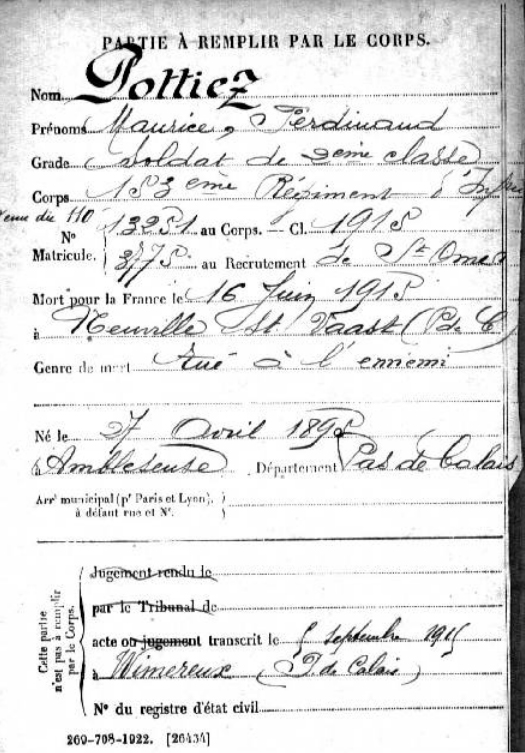 PARTIE À REMPLIR PAR LE CORPS.
Nom Pottiez
Prénoms Maurice, Ferdinand
Grade Soldat de 2ème classe
Corps 153ème Régiment d'Inf
venu du 110
N° Matricule. 13251 au Corps. — Cl. 1915
au Recutement de St Omer
Mort pour la France le 16 Juin 1915
à Neuville St Vaast (P. de C)
Genre de mort Tué à l'ennemi
Né le 27 Avril 1895
à Ambleteuse Département Pas de Calais
Arrt municipal (pr Paris et Lyon),
à défaut rue et N°.
Cette partie n'est pas à remplir par le Corps.
Jugement rendu le
par le Tribunal de
acte ou jugement transcrit le 5 septembre 1915
à Wimereux (P. de Calais)
N° du registre d'état civil
269-708-1922. [26434]